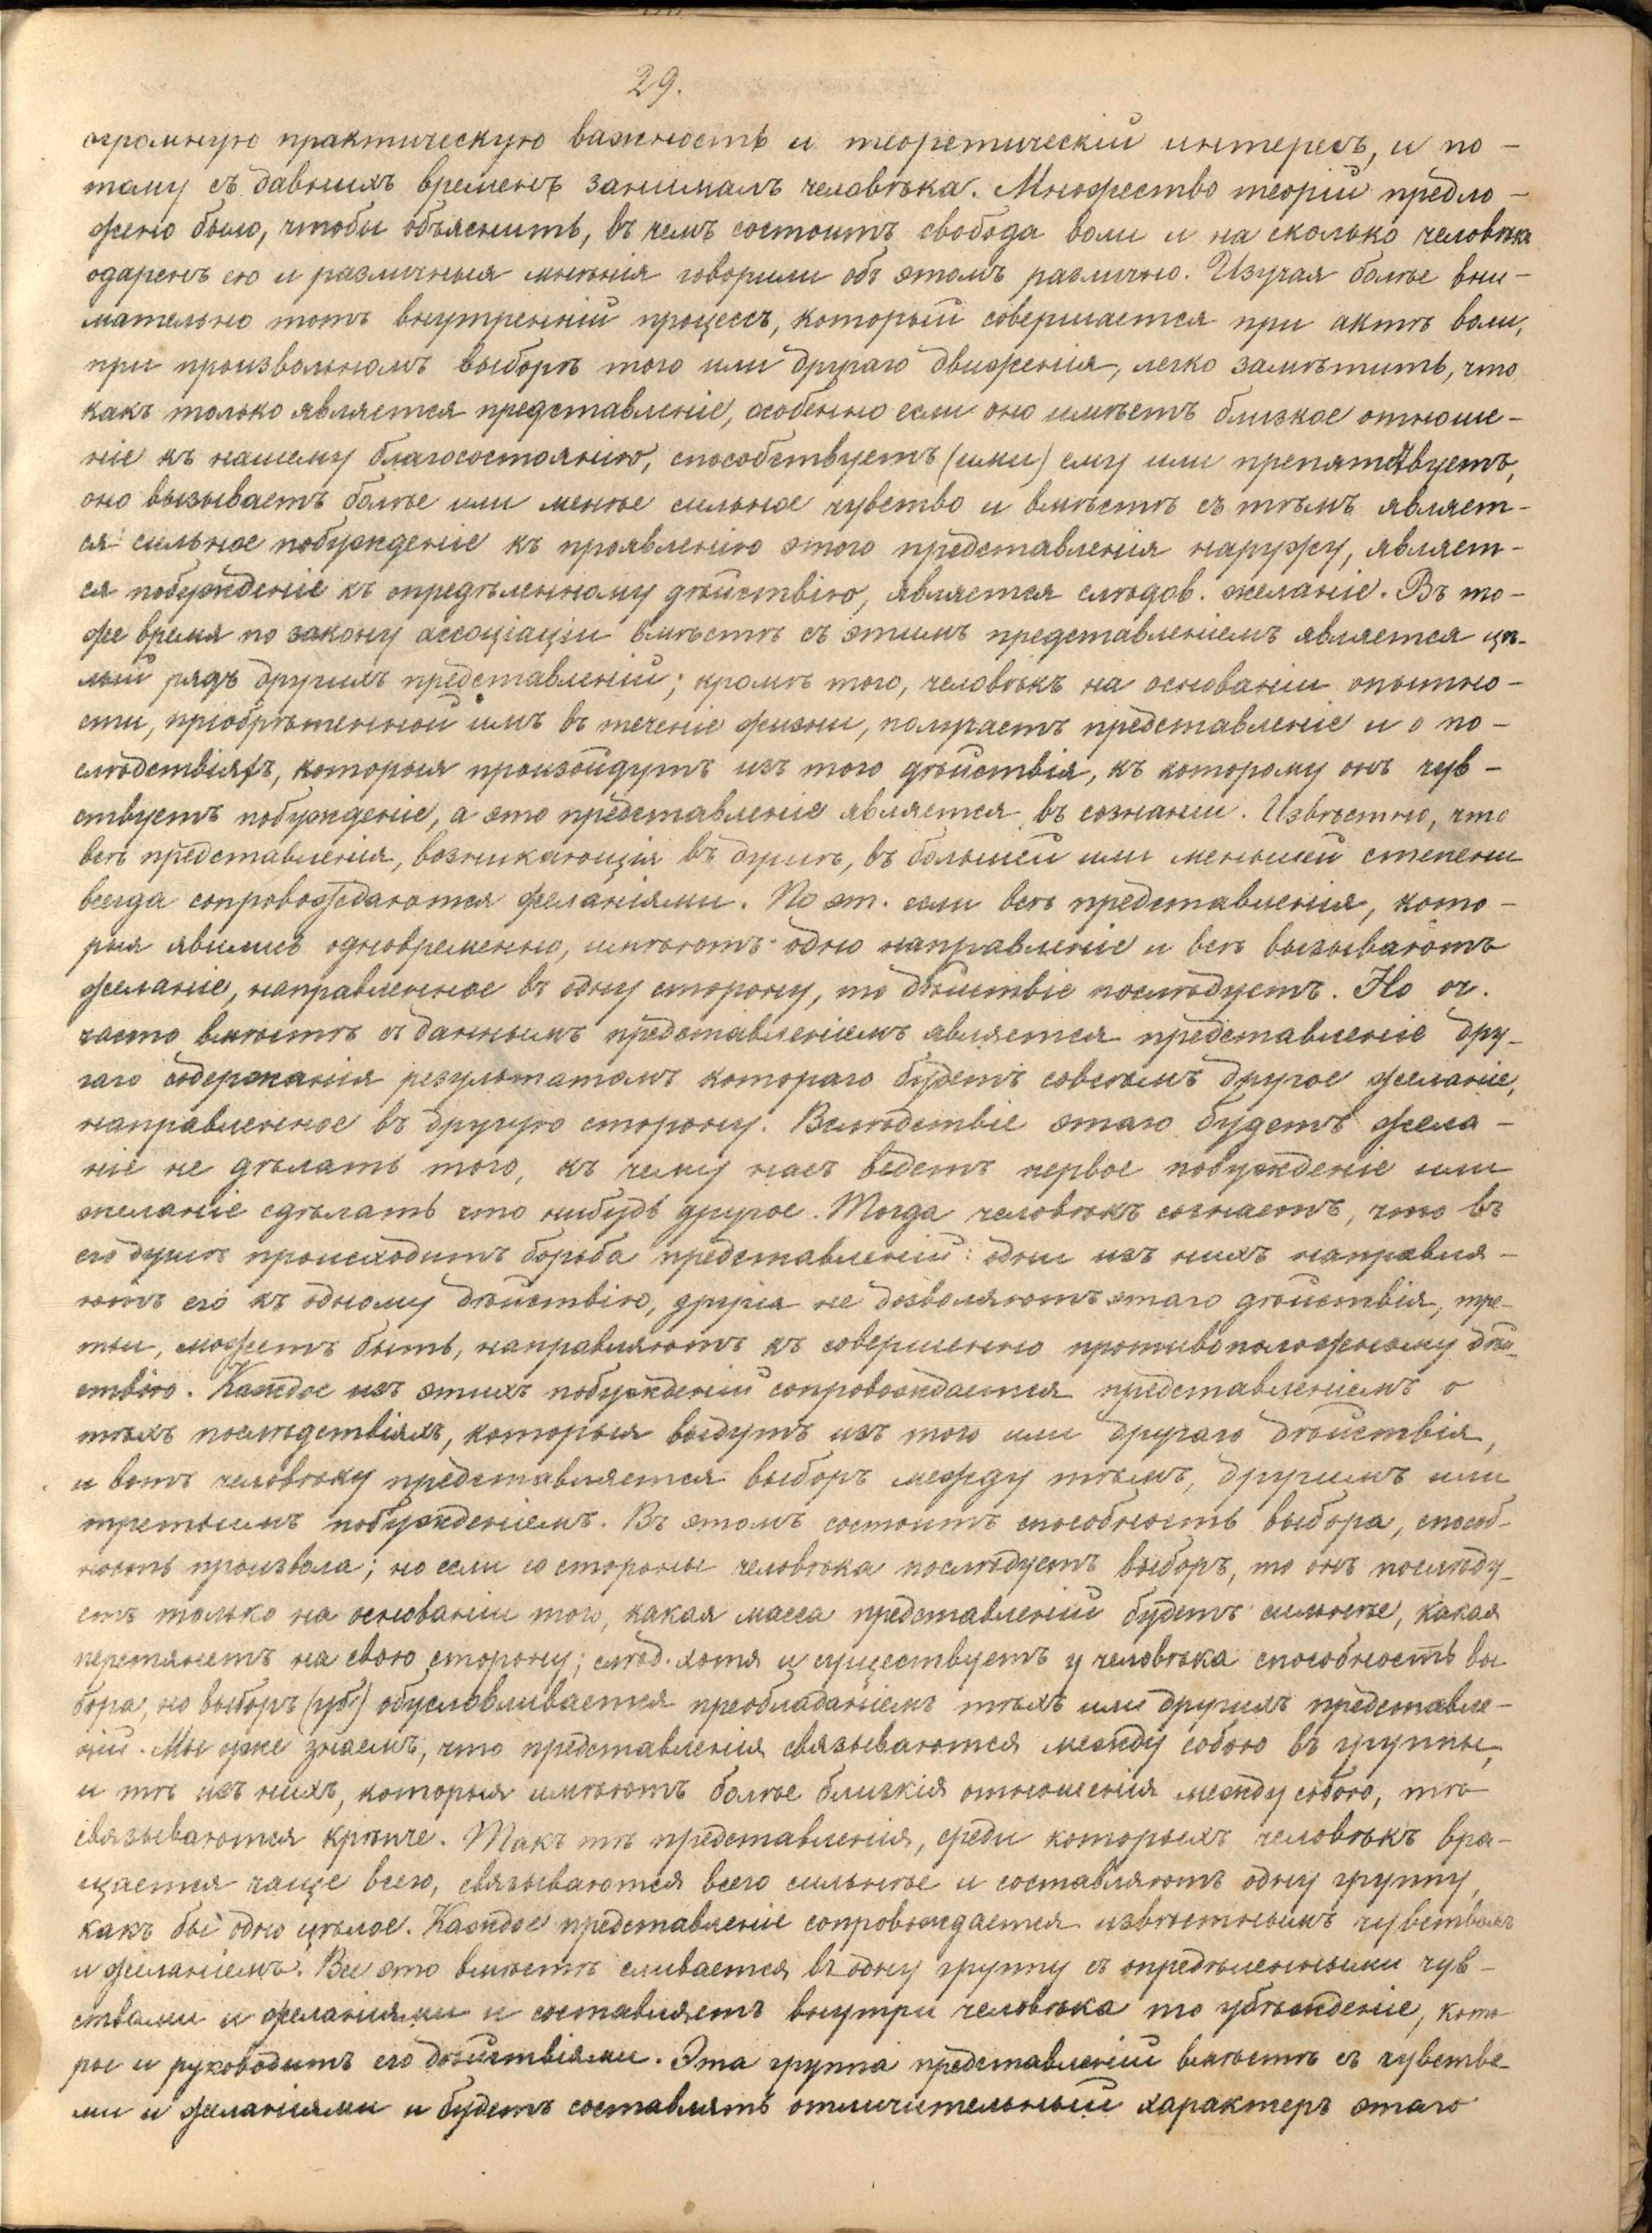 29.
огромную практическую важность и теоретическій интересъ, и по-
тому съ давнихъ временъ занималъ человѣка. Множество теорій предло-
жено было, чтобы объяснить, въ чемъ состоитъ свобода воли и на сколько человѣкъ
одаренъ ею и различныя мнѣнія говорили объ этомъ различно. Изучая болѣе вни-
мательно тотъ внутренній процессъ, который совершается при актѣ воли,
при произвольномъ выборѣ того или другаго движенія, легко замѣтить, что
какъ только является представленіе, особенно если оно имѣетъ близкое отноше-
ніе къ нашему благосостоянію, способствуетъ (или) ему или препятствуетъ,
оно вызываетъ болѣе или менѣе сильное чувство и вмѣстѣ съ тѣмъ являет-
ся сильное побужденіе къ проявленію этого представленія наружу, являет-
ся побужденіе къ опредѣленному дѣйствію, является слѣдов. желаніе. Въ то-
же время по закону ассоціаціи вмѣстѣ съ этимъ представленіемъ является цѣ-
лый рядъ другихъ представленій; кромѣ того, человѣкъ на основаніи опытно-
сти, пріобрѣтенной имъ въ теченіе жизни, получаетъ представленіе и о по-
слѣдствіяхъ, которыя произойдутъ изъ того дѣйствія, къ которому онъ чув-
ствуетъ побужденіе, а это представленіе является въ сознаніи. Извѣстно, что
всѣ представленія, возникающія въ душѣ, въ большей или меньшей степени
всегда сопровождаются желаніями. По эт. если всѣ представленія, кото-
рыя явились одновременно, имѣютъ одно направленіе и всѣ вызываютъ
желаніе, направленное въ одну сторону, то дѣйствіе послѣдуетъ. Но оч.
часто вмѣстѣ съ даннымъ представленіемъ является представленіе дру-
гаго содержанія результатомъ котораго будетъ совсѣмъ другое желаніе,
направленное въ другую сторону. Вслѣдствіе этаго будетъ жела-
ніе не дѣлать того, къ чему насъ ведетъ первое побужденіе или
желаніе сдѣлать что нибудь другое. Тогда человѣкъ сознаетъ, что въ
его душѣ происходитъ борьба представленій: одни изъ нихъ направля-
ютъ его къ одному дѣйствію, другія не дозволяютъ этаго дѣйствія, тре-
тьи, можетъ быть, направляютъ къ совершенно противоположному дѣй-
ствію. Каждое изъ этихъ побужденій сопровождается представленіемъ о
тѣхъ послѣдствіяхъ, которыя выдутъ изъ того или другаго дѣйствія,
и вотъ человѣку представляется выборъ между тѣмъ, другимъ или
третьимъ побужденіемъ. Въ этомъ состоитъ способность выбора, способ-
ность произвола; но если со стороны человѣка послѣдуетъ выборъ, то онъ послѣду-
етъ только на основаніи того, какая масса представленій будетъ сильнѣе, какая
перетянетъ на свою сторону; слѣд. хотя и существуетъ у человѣка способность вы
бора, но выборъ (уб) обусловливается преобладаніемъ тѣхъ или другихъ представле-
ній. Мы уже знаемъ, что представленія связываются между собою въ группы,
и тѣ изъ нихъ, которыя имѣютъ болѣе близкія отношенія между собою, тѣ
связываются крѣпче. Такъ тѣ представленія, среди которыхъ человѣкъ вра-
щается чаще всего, связываются всего сильнѣе и составляютъ одну группу,
какъ бы одно цѣлое. Каждое представленіе сопровождается извѣстнымъ чувствомъ
и желаніемъ. Все это вмѣстѣ сливается въ одну группу съ опредѣленными чув-
ствами и желаніями и составляетъ внутри человѣка то убѣжденіе, кото-
рое и руководитъ его дѣйствіями. Эта группа представленій вмѣстѣ съ чувства-
ми и желаніями и будетъ составлять отличительный характеръ этаго